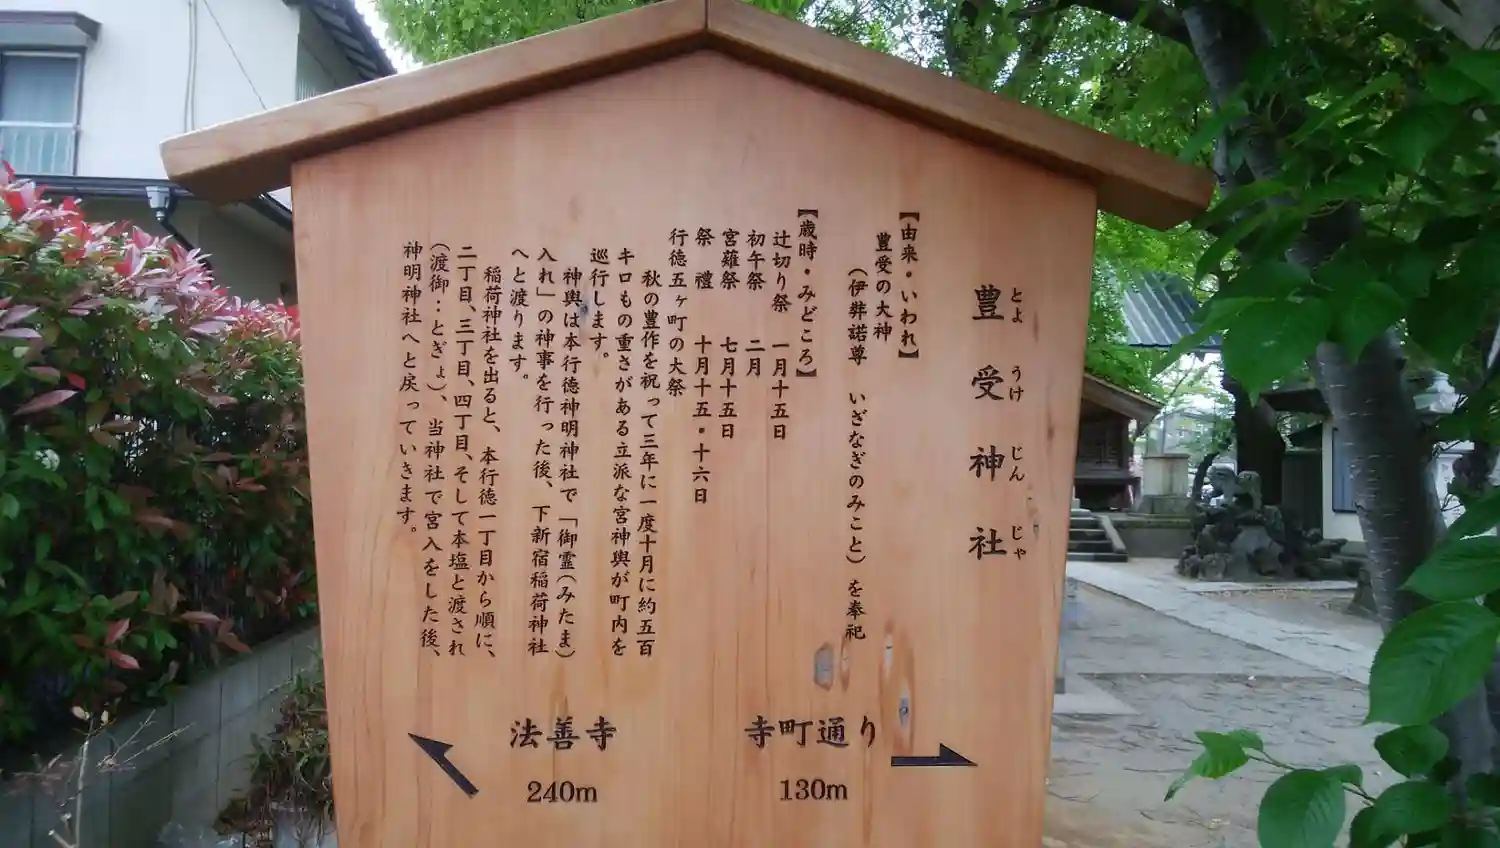 豊受神社
とよ うけ じん じゃ
【由来・いわれ】
豊受の大神
（伊弉諾尊 いざなぎのみこと）を奉祀
【歳時・みどころ】
辻切り祭 一月十五日
初午祭 二月
宮薙祭 七月十五日
祭禮 十月十五・十六日
行徳五ヶ町の大祭
秋の豊作を祝って三年に一度十月に約五百
キロもの重さがある立派な宮神輿が町内を
巡行します。
神輿は本行徳神明神社で「御霊（みたま）
入れ」の神事を行った後、下新宿稲荷神社
へと渡ります。
稲荷神社を出ると、本行徳一丁目から順に、
二丁目、三丁目、四丁目、そして本塩と渡され
（渡御：とぎょ）、当神社で宮入をした後、
神明神社へと戻っていきます。
寺町通り
130m
法善寺
240m